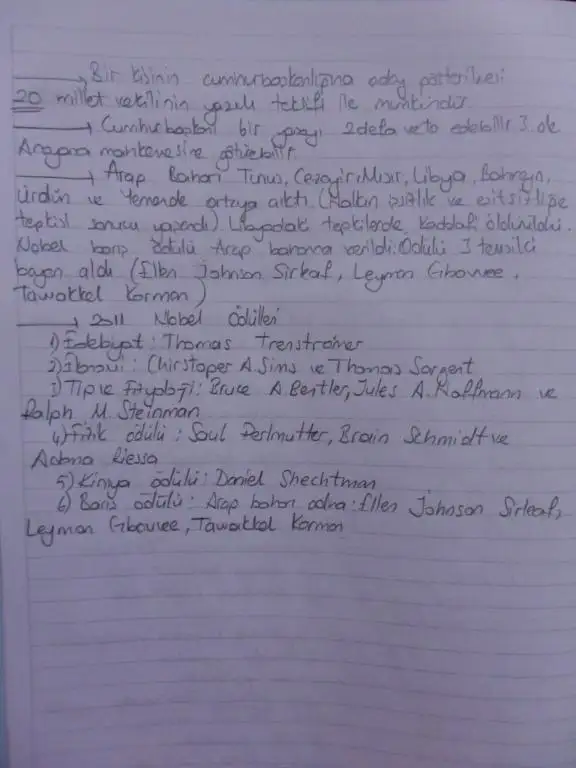 Bir kişinin cumhurbaşkanlığına aday gösterilmesi
20 millet vekilinin yazılı teklifi ile mümkündür.
Cumhurbaşkanı bir yasayı 2 defa veto edebilir 3. de
Anayasa mahkemesine götürebilir.
Arap Baharı Tunus, Cezayir, Mısır, Libya, Bahreyn,
Ürdün ve Yemende ortaya çıktı. (Halkın işsizlik ve eşitsizliğe
tepkisi sonucu yaşandı) Libyadaki tepkilerde Kaddafi öldürüldü.
Nobel barış ödülü Arap baharına verildi. Ödülü 3 temsilci
bayan aldı (Ellen Johnson Sirkaf, Leymon Gbowee,
Tawakkel Karman)
2011 Nobel Ödülleri
1) Edebiyat: Thomas Transtromer
2) Ekonomi: Chirstoper A Sims ve Thomas Sargent
3) Tıp ve Fizyoloji: Bruce A Beutler, Jules A. Hoffmann ve
Ralph M. Steinman
4) Fizik ödülü: Saul Perlmutter, Brain Schmidt ve
Adama Riessa
5) Kimya ödülü: Daniel Shechtman
6) Barış ödülü: Arap baharı adına: Ellen Johnson Sirleaf,
Leyman Gbowee, Tawakkol Karman